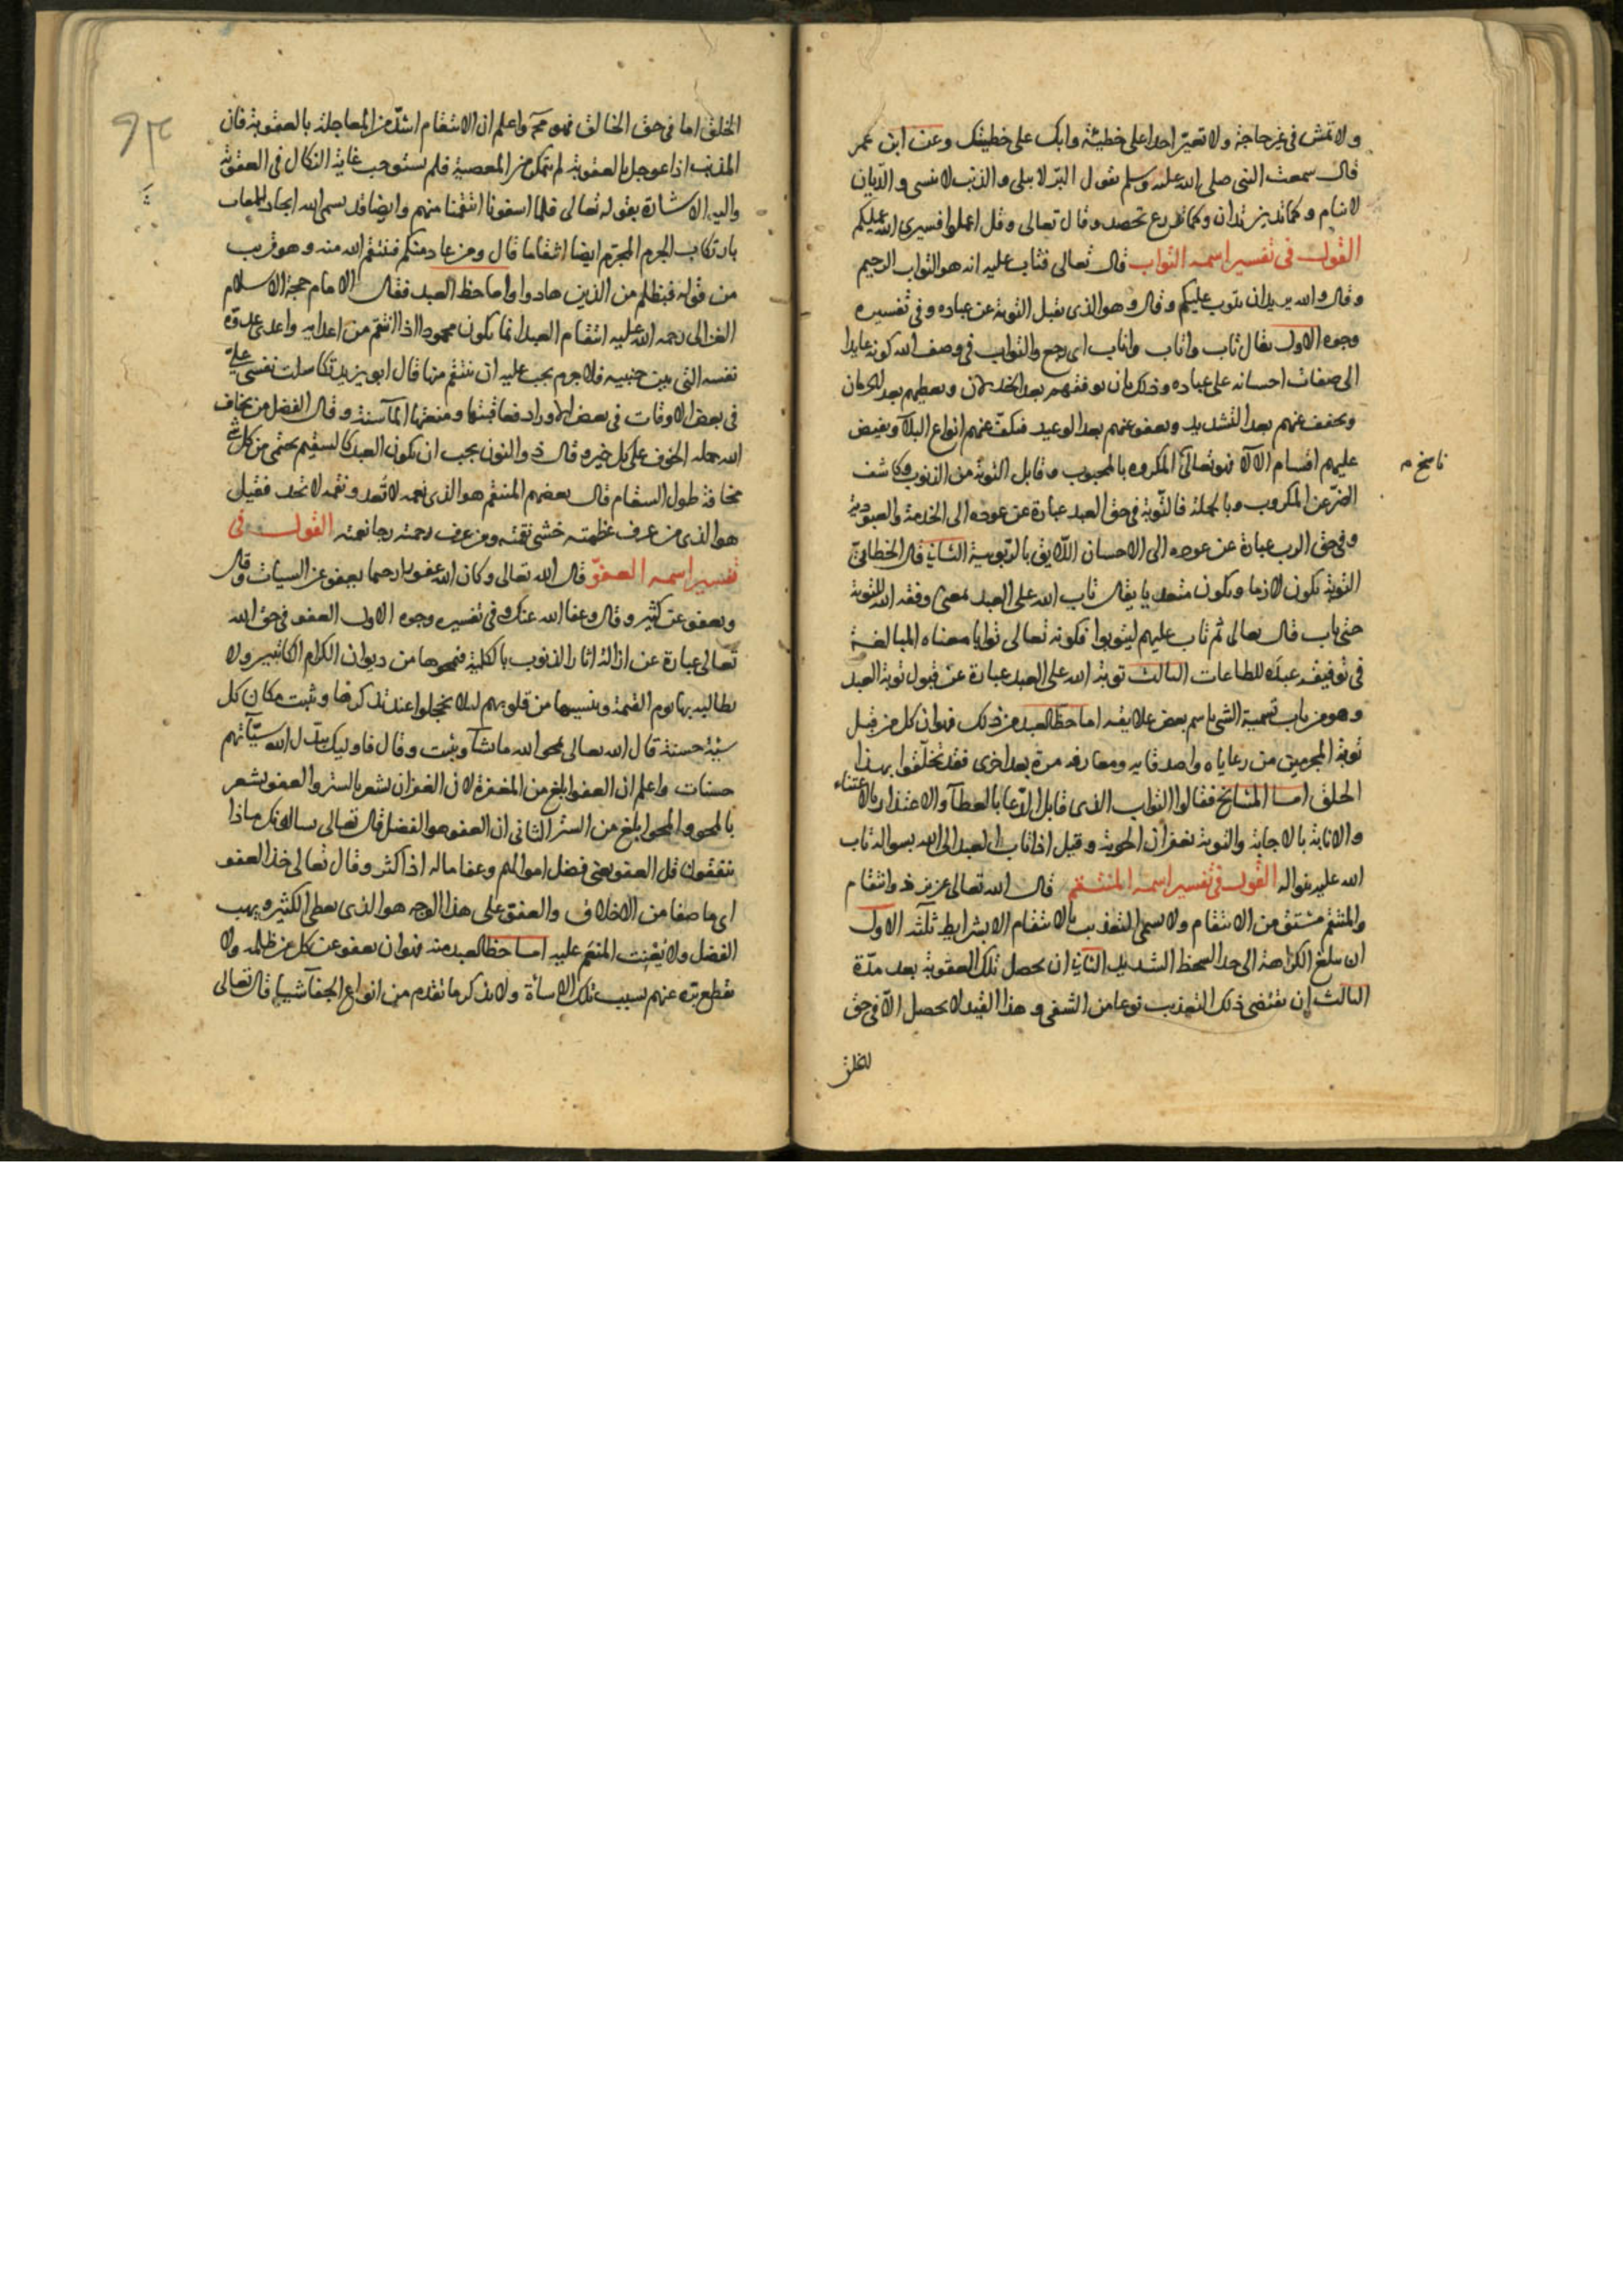 ولا تمش في غير حاجة ولا تعير احدا على خطيئة وابك على خطيئتك وعن ابن عمر
قال سمعت النبي صلى الله عليه وسلم يقول البر لا يبلى والذنب لا ينسى والديان
لا ينام وكما تدين تدان وكما تزرع تحصد وقال تعالى وقل اعملوا فسيرى الله عملكم
القول في تفسير اسمه التواب قال تعالى فتاب عليه انه هو التواب الرحيم
وقال والله يريد ان يتوب عليكم وقال وهو الذي يقبل التوبة عن عباده وفي تفسيره
وجوه الاول يقال تاب واناب وثاب اي رجع والتواب في وصف الله كونه عايدا
الى صفات احسانه على عباده وذلك بان يوفقهم بعد الخذلان ويعطيهم بعد الحرمان
ويخفف عنهم بعد التشديد ويعفو عنهم بعد الوعيد فيكف عنهم انواع البلا ويفيض
عليهم اقسام الآلا فهو تعالى المكروه بالمحبوب وقابل التوبة من الذنوب وكاشف
ناسخ
الضر عن المكروب وبالجملة فالتوبة في حق العبد عبارة عن عوده الى الخدمة والعبودية
وفي حق الرب عبارة عن عوده الى الاحسان اللايق بالربوبية الثاني قال الخطابي
التوبة تكون لازما ويكون متعديا يقال تاب الله على العبد بمعنى وفقه الله للتوبة
حتى تاب قال تعالى ثم تاب عليهم ليتوبوا فكونه تعالى توابا معناه المبالغة
في توفيقه عبده للطاعات الثالث توبة الله على العبد عبارة عن قبول توبة العبد
وهو من باب تسمية الشي باسم بعض علايقه اما حظ العبد من ذلك فهو ان كل من قبل
توبة المجرمين من رعاياه واصدقايه ومعارفه مرة بعد اخرى فقد تخلقوا بهذا
الخلق اما المشايخ فقالوا التواب الذي قابل الدعا بالعطا والاعتذار بالاعتناء
والانابة بالاجابة والتوبة بغفران الحوبة وقيل اذا تاب العبد الى الله بسواله تاب
الله عليه بنواله القول في تفسير اسمه المنتقم قال الله تعالى عزيز ذو انتقام
والمنتقم مشتق من الانتقام ولا يسمى التعذيب بالانتقام الا بشرايط ثلثه الاول
ان يبلغ الكراهة الى حد السخط الشديد الثاني ان يحصل تلك العقوبة بعد مدة
الثالث ان يقتضي ذلك التعذيب نوعا من التشفي وهذا القيد لا يحصل الا في حق
الخلق
الخلق اما في حق الخالق فهو مح واعلم ان الانتقام اشد من المعاجلة بالعقوبة فان
المذنب اذا عوجل بالعقوبة لم يتمكن من المعصية فلم يستوجب غاية النكال في العقوبة
واليه الاشارة بقوله تعالى فلما اسفونا انتقمنا منهم وايضا قد يسمى الله ايجاد العقاب
بارتكاب الجرم المجرم ايضا انتقاما قال ومن عاد منكم فينتقم الله منه وهو قريب
من قوله فبظلم من الذين هادوا واما حظ العبد فقال الامام حجة الاسلام
الغزالى رحمه الله عليه انتقام العبد انما يكون محمودا اذا انتقم من اعدايه واعدى عدوه
نفسه التي بين جنبيه فلا جرم يجب عليه ان ينتقم منها قال ابو يزيد تكاسلت نفسي علي
في بعض الاوقات في بعض الاوراد فعاقبتها ومنعتها الماء سنة وقال الفضل من يخاف
الله حمله الخوف على كل خير وقال ذو النون يجب ان يكون العبد كالسقيم يحتمى من كل شي
مخافة طول السقام قال بعضهم المنتقم هو الذي نعمه لا تعد ونقمه لا تحد فقيل
هو الذي من عرف عظمته خشي نقمته ومن عرف رحمته رجا نعمته القول في
تفسير اسمه العفو قال الله تعالى وكان الله عفوا رحيما يعفو عن السيات وقال
ويعفو عن كثير وقال وعفا الله عنك وفي تفسيره وجوه الاول العفو في حق الله
تعالى عبارة عن ازالة اثار الذنوب بالكلية فيمحوها من ديوان الكرام الكاتبين ولا
يطالبه بها يوم القيمة وينسيها من قلوبهم ليلا يخجلوا عند تذكرها ويثبت مكان كل
سيئة حسنة قال الله تعالى يمحو الله ما يشآ ويثبت وقال فاوليك يبدل الله سيآتهم
حسنات واعلم ان العفو ابلغ من المغفرة لان الغفران يشعر بالستر والعفو يشعر
بالمحو والمحو ابلغ من الستر الثاني ان العفو هو الفضل قال تعالى يسالونك ماذا
ينفقون قل العفو يعني فضل اموالهم وعفا ماله اذا كثر وقال تعالى خذ العفو
اي ما صفا من الاخلاق والعفو على هذا الوجه هو الذي يعطى الكثير ويهب
الفضل ولا يعنت المنعم عليه اما حظ العبد منه فهو ان يعفو عن كل من ظلمه ولا
يقطع بره عنهم بسبب تلك الاساءة ولا يذكر ما تقدم من انواع الجفا شيئا قال تعالى